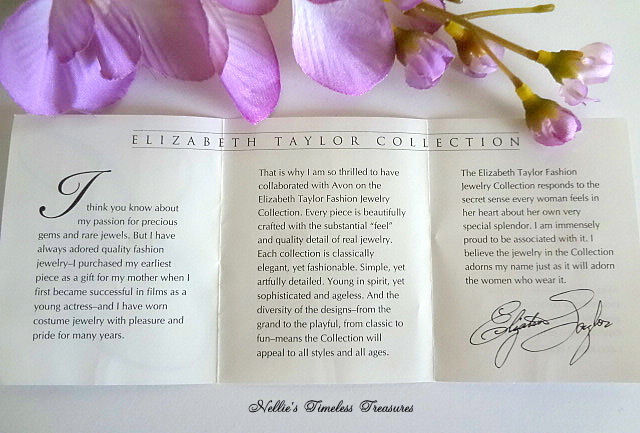 ELIZABETH TAYLOR COLLECTION
I think you know about
my passion for precious
gems and rare jewels. But I have
always adored quality fashion
jewelry–I purchased my earliest
piece as a gift for my mother when I
first became successful in films as a
young actress–and I have worn
costume jewelry with pleasure and
pride for many years.
That is why I am so thrilled to have
collaborated with Avon on the
Elizabeth Taylor Fashion Jewelry
Collection. Every piece is beautifully
crafted with the substantial “feel”
and quality detail of real jewelry.
Each collection is classically
elegant, yet fashionable. Simple, yet
artfully detailed. Young in spirit, yet
sophisticated and ageless. And the
diversity of the designs–from the
grand to the playful, from classic to
fun–means the Collection will
appeal to all styles and all ages.
The Elizabeth Taylor Fashion
Jewelry Collection responds to the
secret sense every woman feels in
her heart about her own very
special splendor. I am immensely
proud to be associated with it. I
believe the jewelry in the Collection
adorns my name just as it will adorn
the women who wear it.
Elizabeth Taylor
Nellie's Timeless Treasures